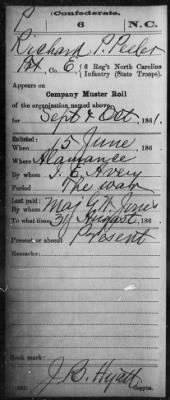 Confederate.
P 6 N.C.
Richard P. Peeler
Pvt, Co. E, 6 Reg't North Carolina
Infantry (State Troops).
Appears on
Company Muster Roll
of the organization named above,
for Sept & Oct, 1861.
Enlisted:
When 15 June, 186
Where Alamance
By whom I. E. Avery
Period The war
Last paid:
By whom Maj G W Jones
To what time 31 August, 186
Present or absent Present
Remarks:
Book mark:
J. B. Hyatt
Copyist.